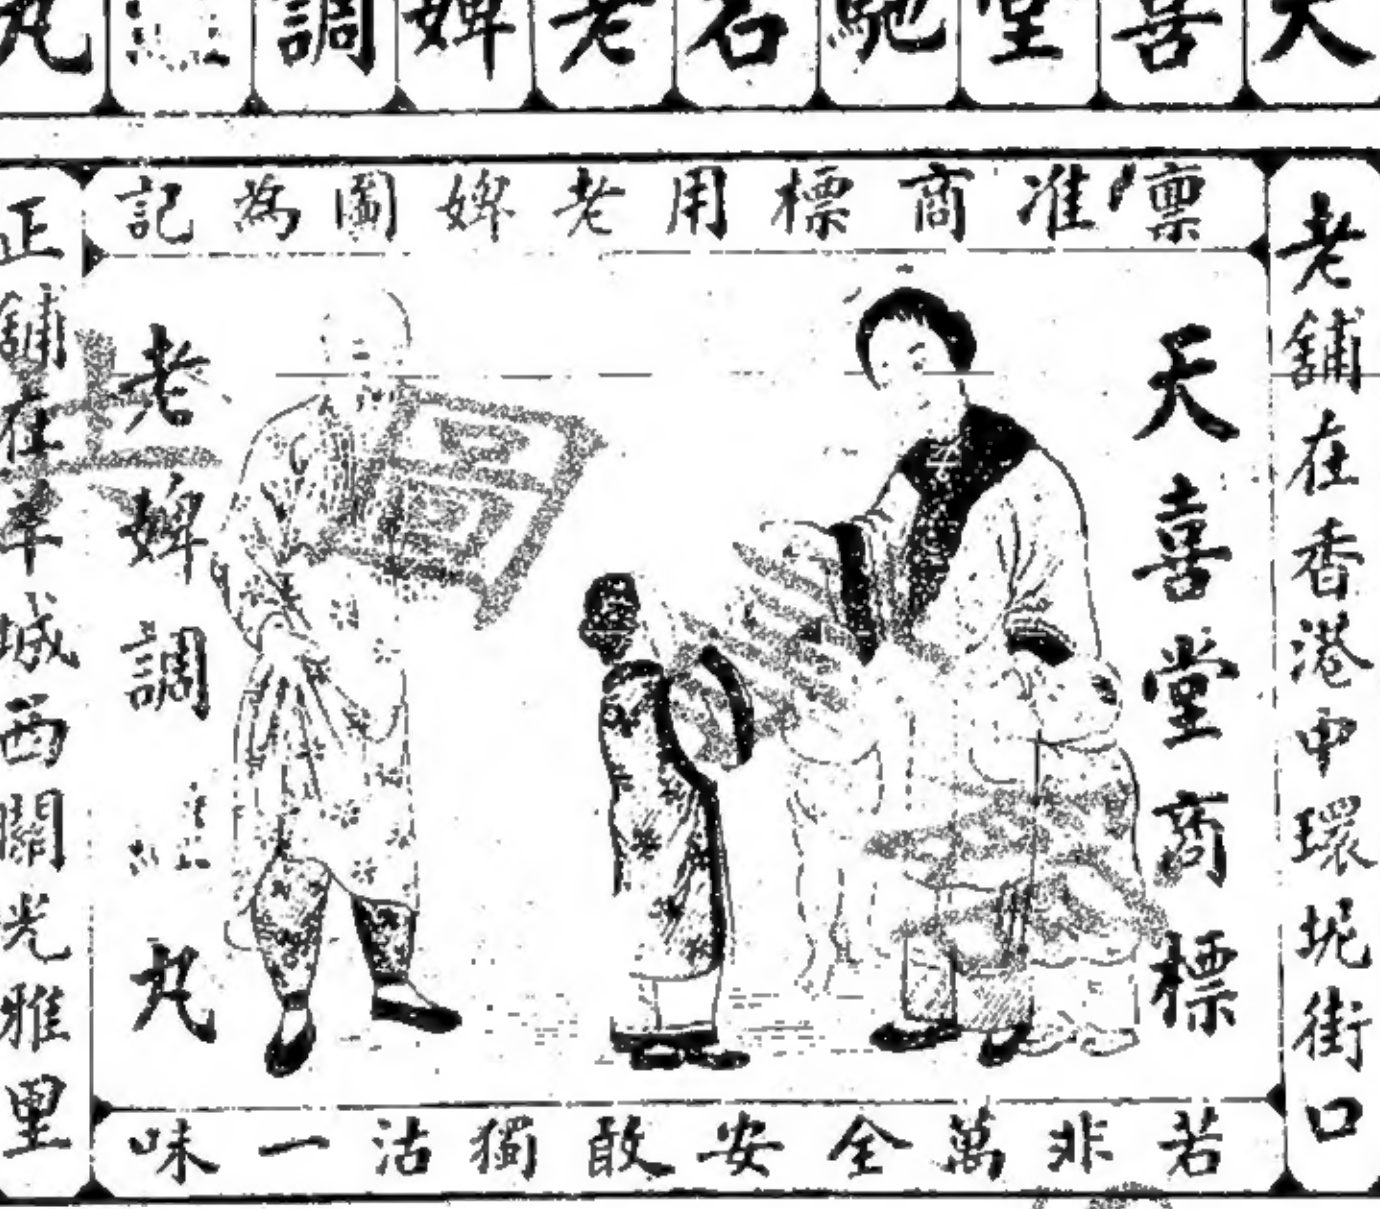 天喜堂馳名老婢調丸
稟准商標用老婢圖為記
老舖在香港中環坭街口
天喜堂商標
老婢調丸
正舖在羊城西關光雅里
若非萬全安敢獨沽一味